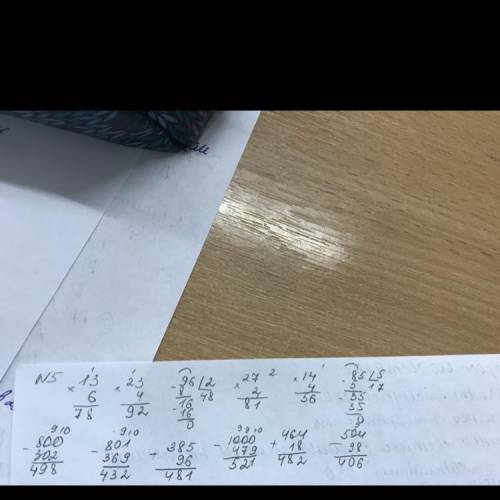 N5
13 × 6 78
23 × 4 92
96 2
8 48
16
16
0
27 2
× 3
81
14 × 4 56
85 5
5 17
35
35
0
9 10
- 800 302 498
9 10
- 801 369 432
+ 385 96 481
9 9 10
- 1000 479 521
+ 464 18 482
- 504 98 406